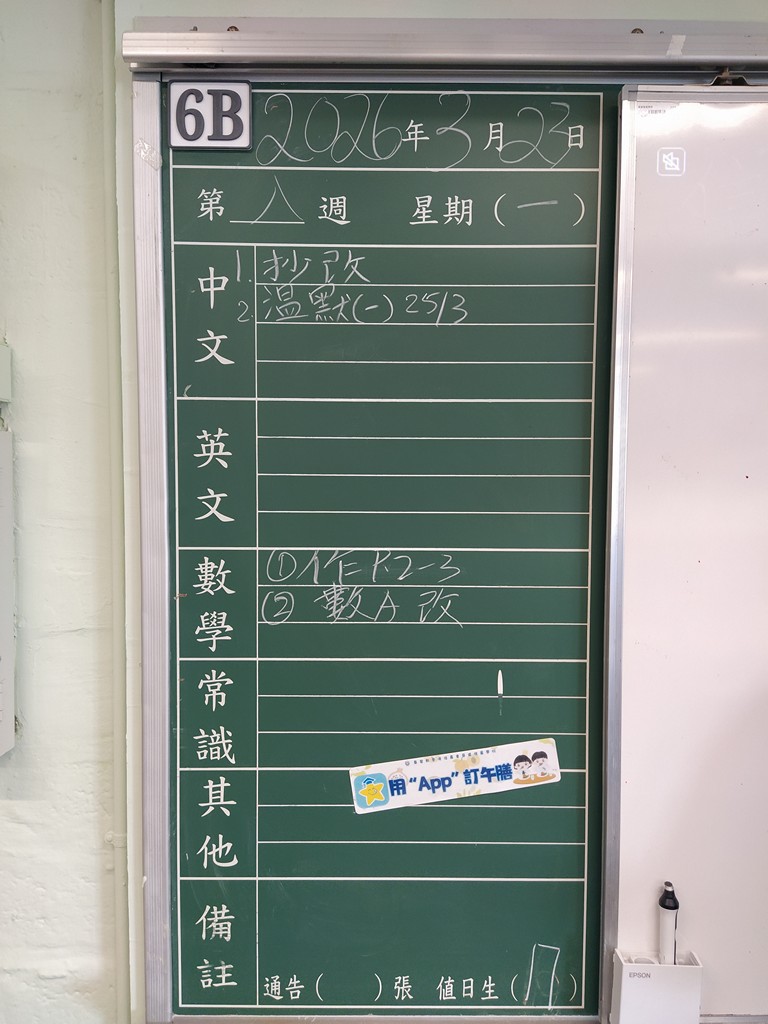 6B
2026年3月23日
第八週 星期(一)
中文
1. 抄改
2. 溫默(一) 25/3
英文
數學
①作 2-3
② 數A 改
常識
其他
用“App”訂午膳
備註
通告( )張 值日生( )
EPSON